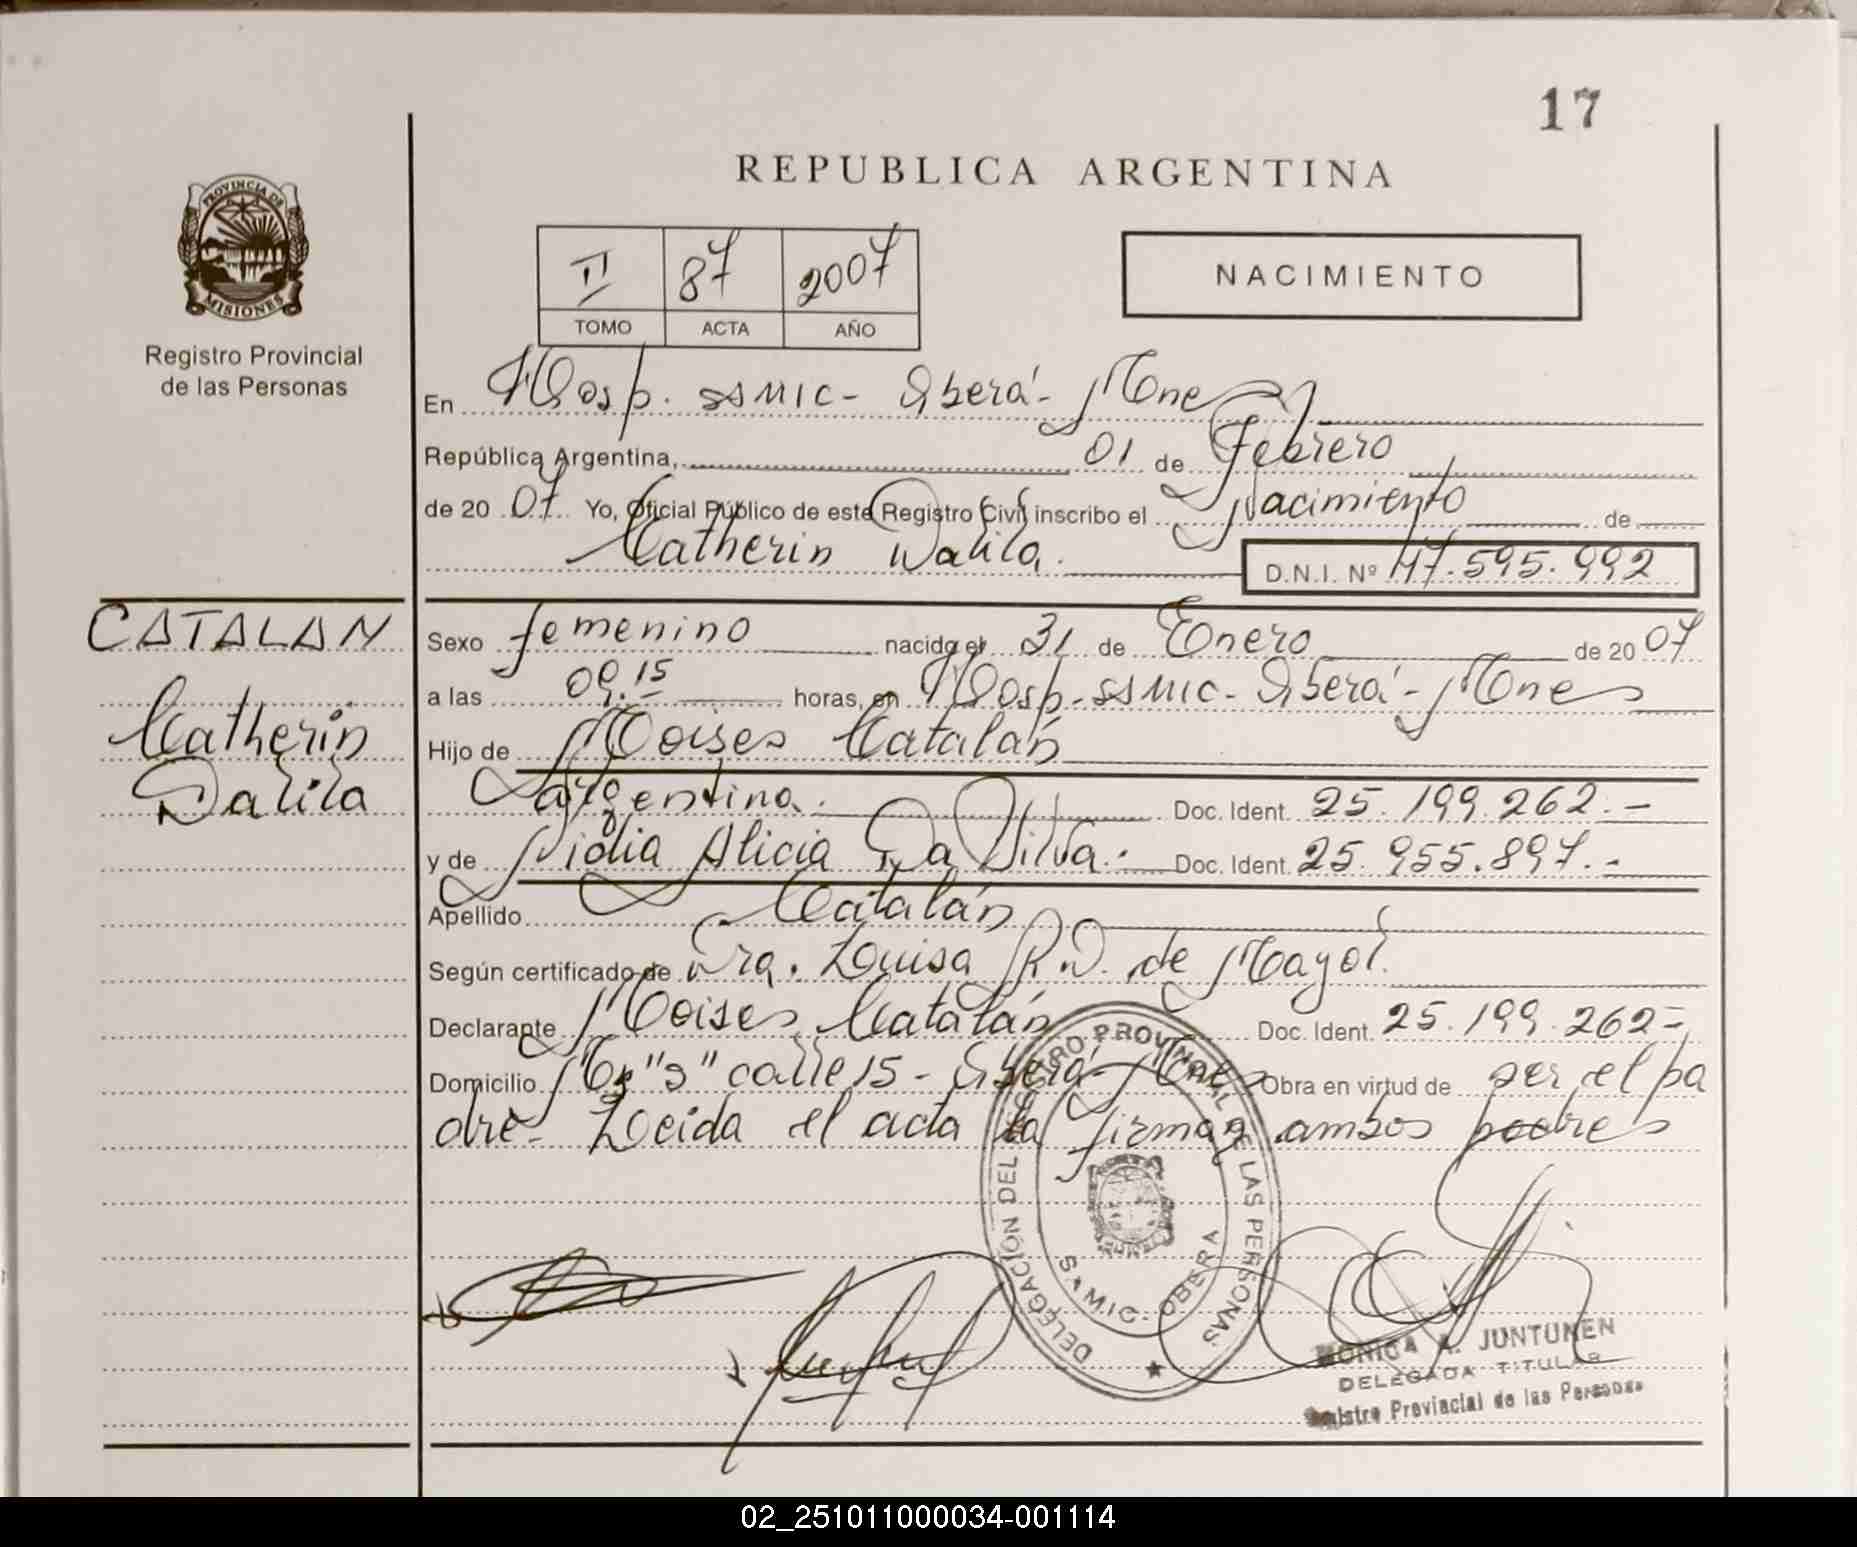 17
REPUBLICA ARGENTINA
PROVINCIA DE
MISIONES
Registro Provincial
de las Personas
II 87 2007
TOMO ACTA AÑO
NACIMIENTO
En Hosp. SSMIC- Oberá- Mnes
República Argentina, 01 de Febrero
de 20 07 Yo, Oficial Público de este Registro Civil inscribo el Nacimiento de
Catherin Dalila.
D.N.I. Nº 47.595.992
CATALAN
Catherin
Dalila
Sexo femenino nacido el 31 de Enero de 20 07
a las 09.15 horas, en Hosp. SSMIC- Oberá- Mnes
Hijo de Moises Catalán
Argentina. Doc. Ident. 25.199.262.-
y de Nidia Alicia Da Silva.- Doc. Ident. 25.955.897.-
Apellido Catalán
Según certificado de Dra. Luisa R.D. de Mayol.
Declarante Moises Catalán Doc. Ident. 25.199.262-
Domicilio "9" calle 15 - Oberá- Mnes Obra en virtud de ser el pa
dre- Leida el acta la firman ambos padres
DELEGACIÓN DEL REGISTRO PROVINCIAL DE LAS PERSONAS
OBERA
MONICA A. JUNTUNEN
DELEGADA TITULAR
Registro Provincial de las Personas
02_251011000034-001114